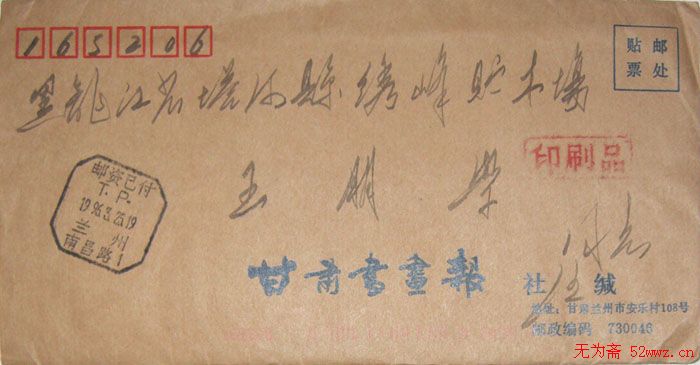 165206
贴邮
票处
黑龙江省塔河縣绣峰贮木場
印刷品
王明學
同志
邮资已付
T.P.
1996.3.25.19
兰州
南昌路1
甘肃書畫報社 缄
地址:甘肃兰州市安乐村108号
邮政编码 730046
无为斋 52wwz.cn